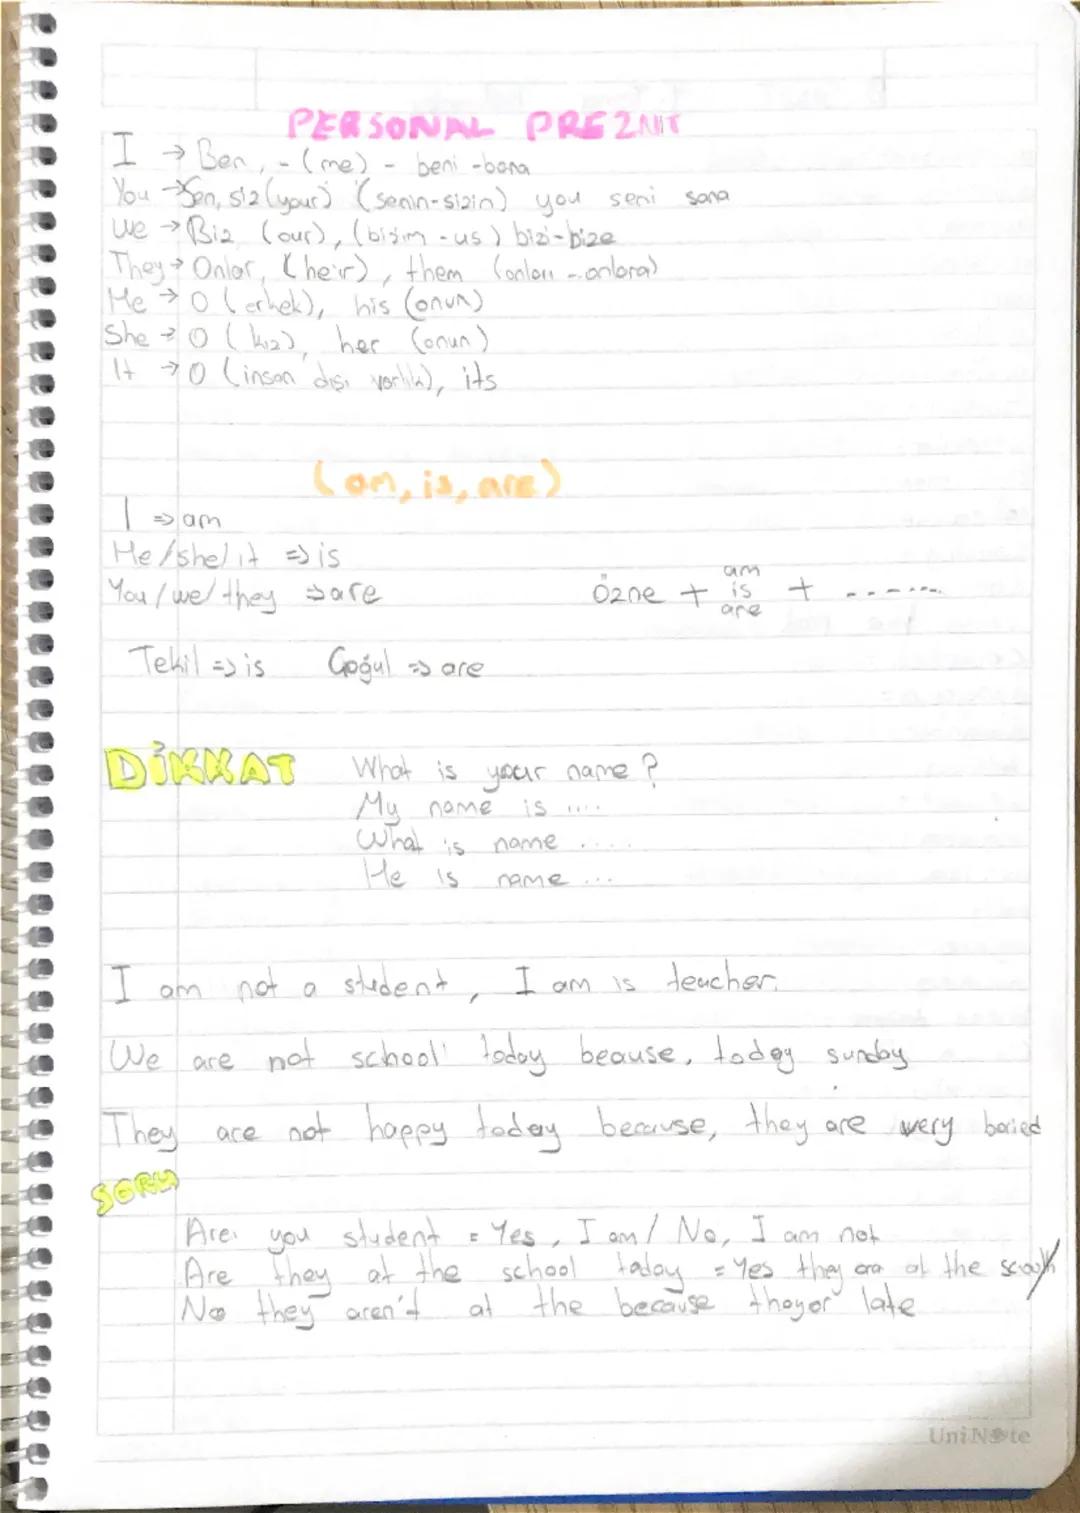 PERSONAL PREZNIT
I → Ben, - (me) - beni -bana
You → Sen, siz (your) (senin-sizin) you seni sana
We → Biz (our), (bizim - us) bizi-bize
They → Onlar, (heir), them (onları - onlara)
He → O (erkek), his (onun)
She → O (kız), her (onun)
It → O (insan dışı varlık), its
(am, is, are)
I => am
He/she/it => is
You/we/they => are
Özne + am is are + .......
Tekil => is Çoğul => are
DİKKAT What is your name?
My name is ....
What is name .....
He is name ...
I am not a student, I am is teacher.
We are not school today beause, today sunday
They are not happy today because, they are very boried
SORU
Are you student = Yes, I am / No, I am not
Are they at the school today = Yes they are at the
No they aren't at the because they late
UniNote